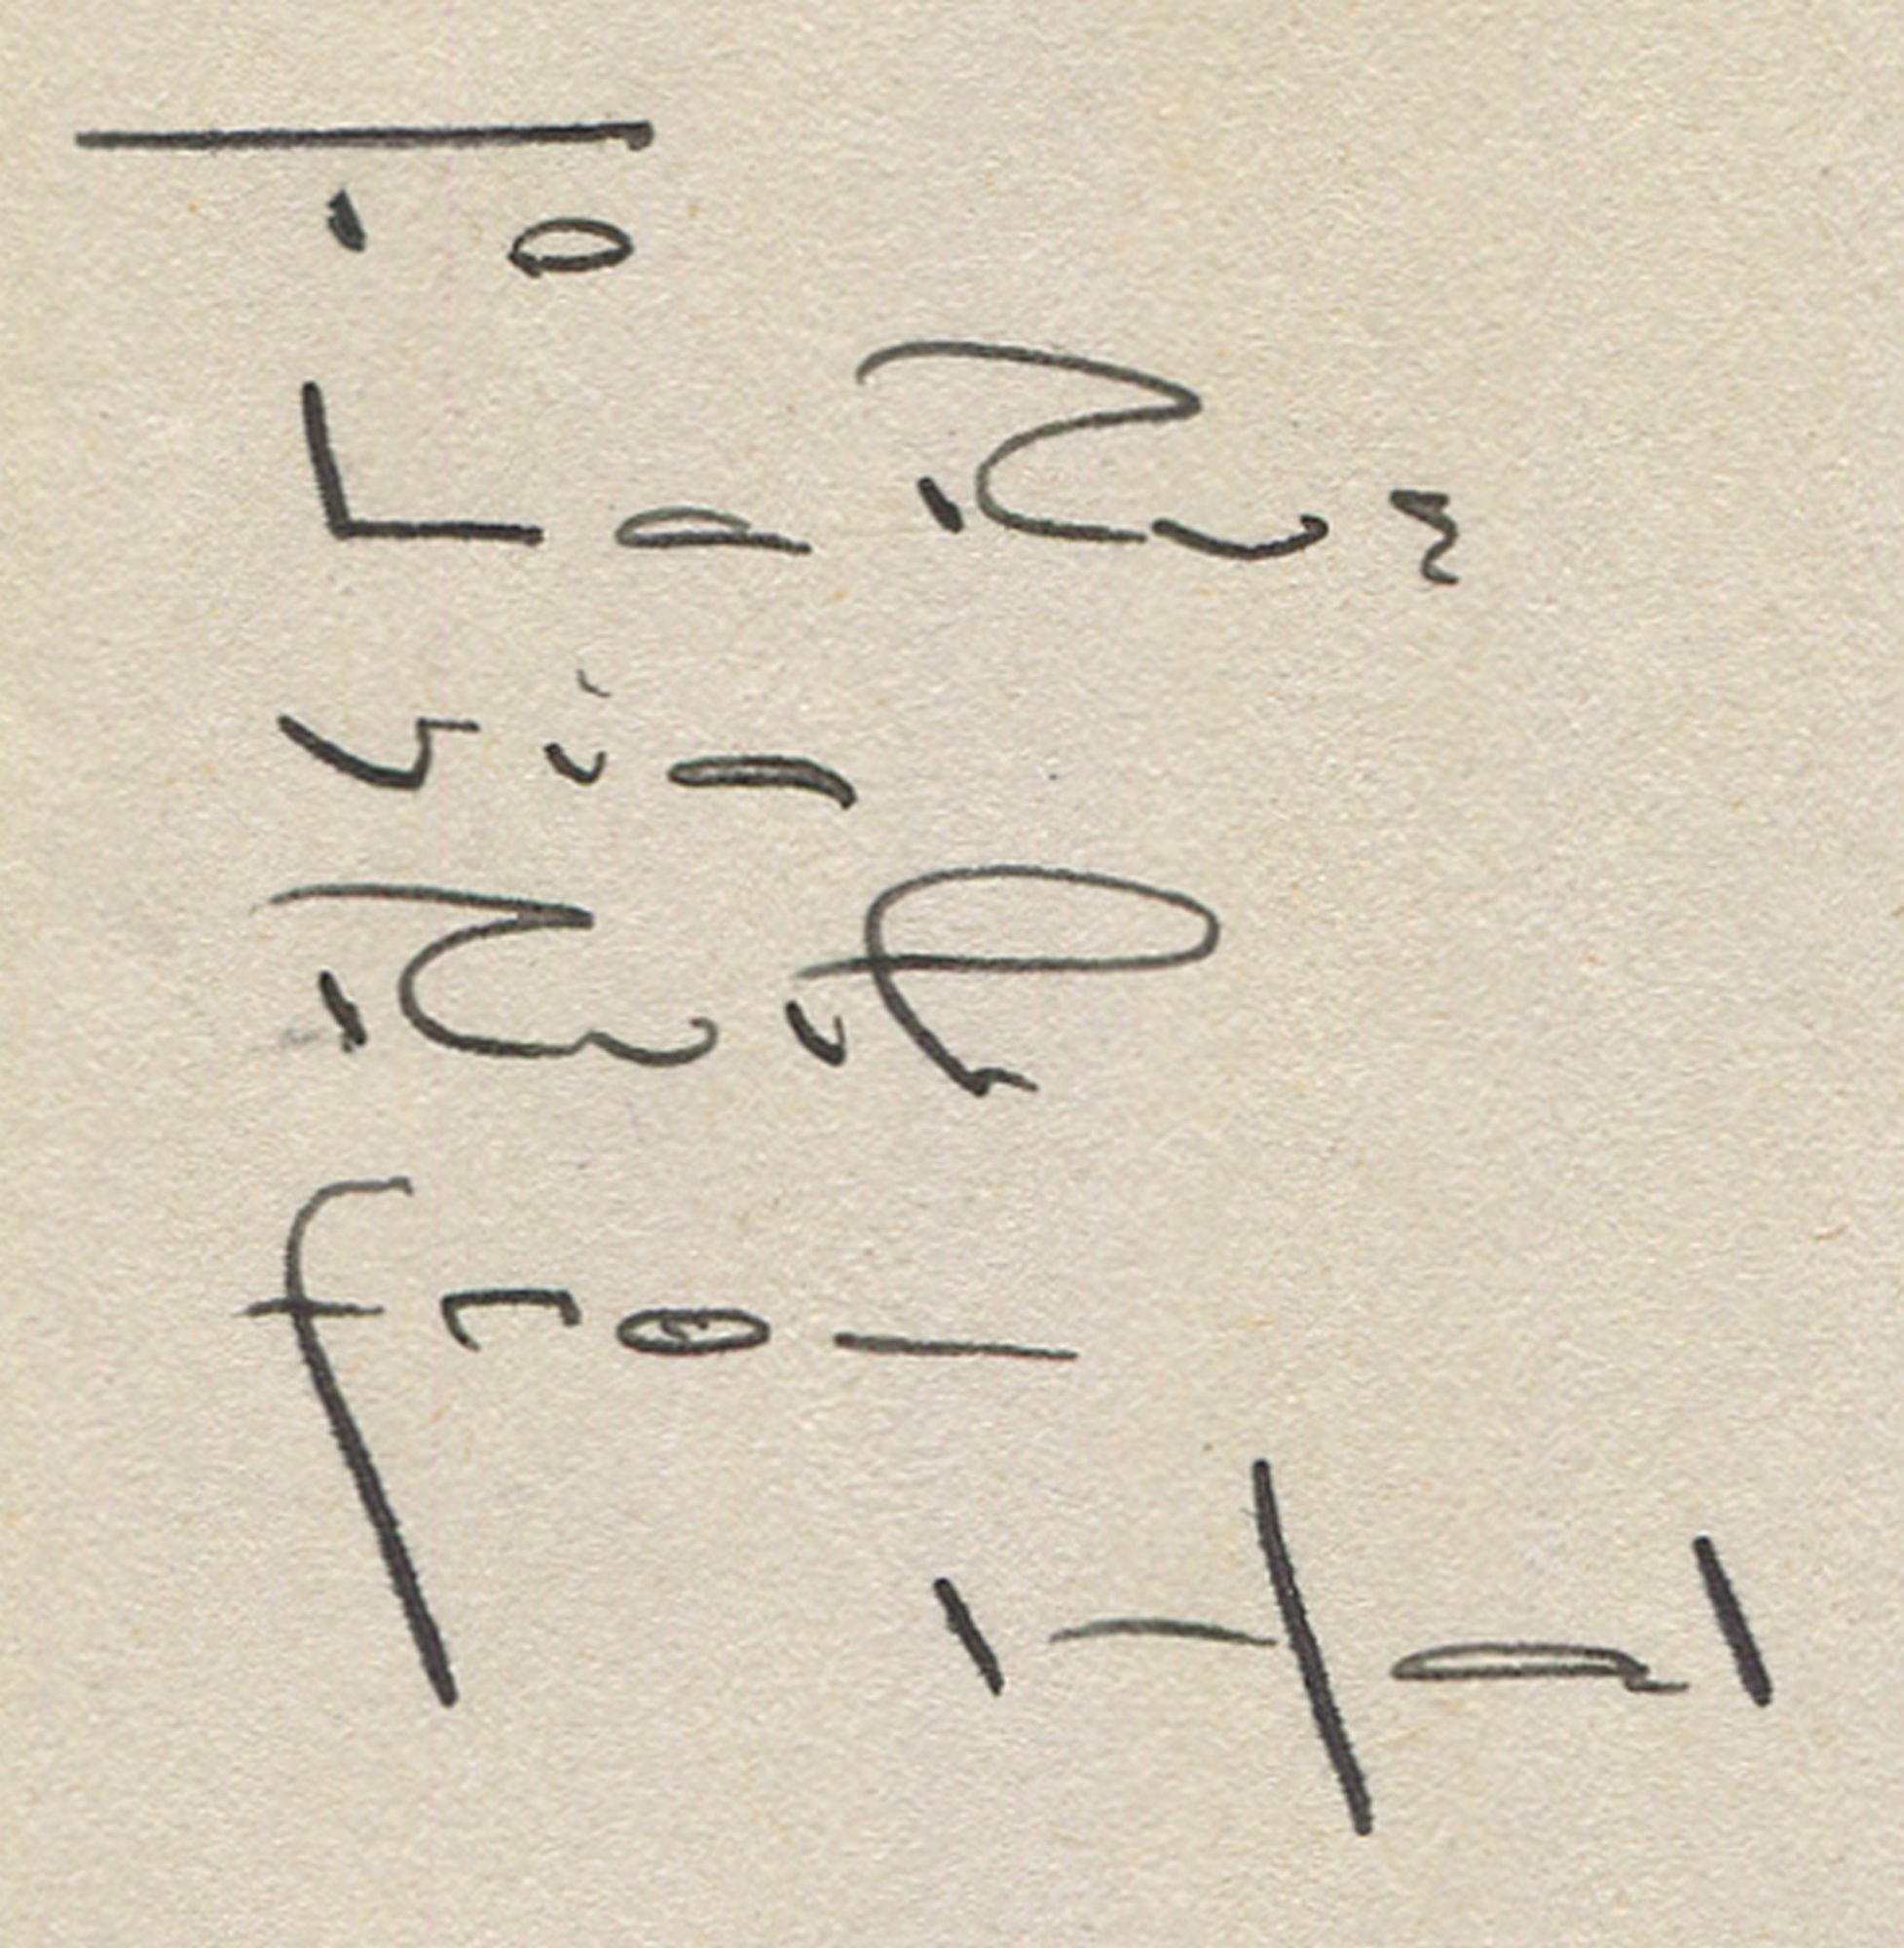 To
La Rue
via
Ruth
from
Hal